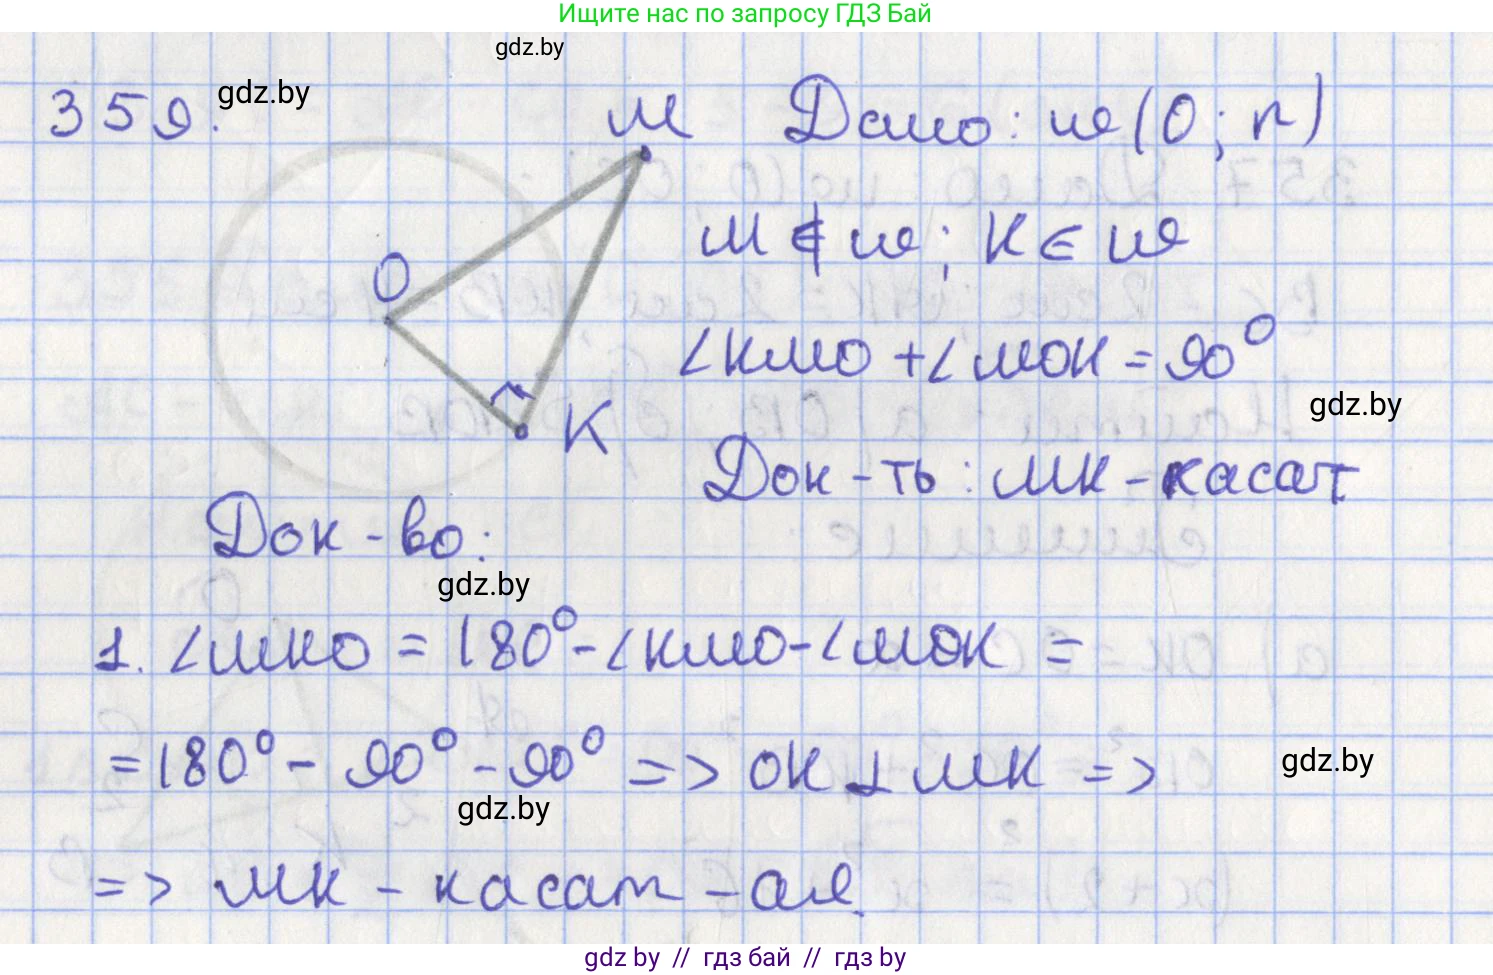 Ищите нас по запросу ГДЗ Бай
gdz.by
359. gdz.by
М Дано: ω(O; r)
O
М ∉ ω; К ∈ ω
∠КМО + ∠МОК = 90°
gdz.by
К
Док-ть: МК - касат
Док-во:
gdz.by
1. ∠МКО = 180° - ∠КМО - ∠МОК =
= 180° - 90° - 90° => ОК ⊥ МК =>
gdz.by
gdz.by
=> МК - касат-ая.
gdz.by // гдз бай // гдз by